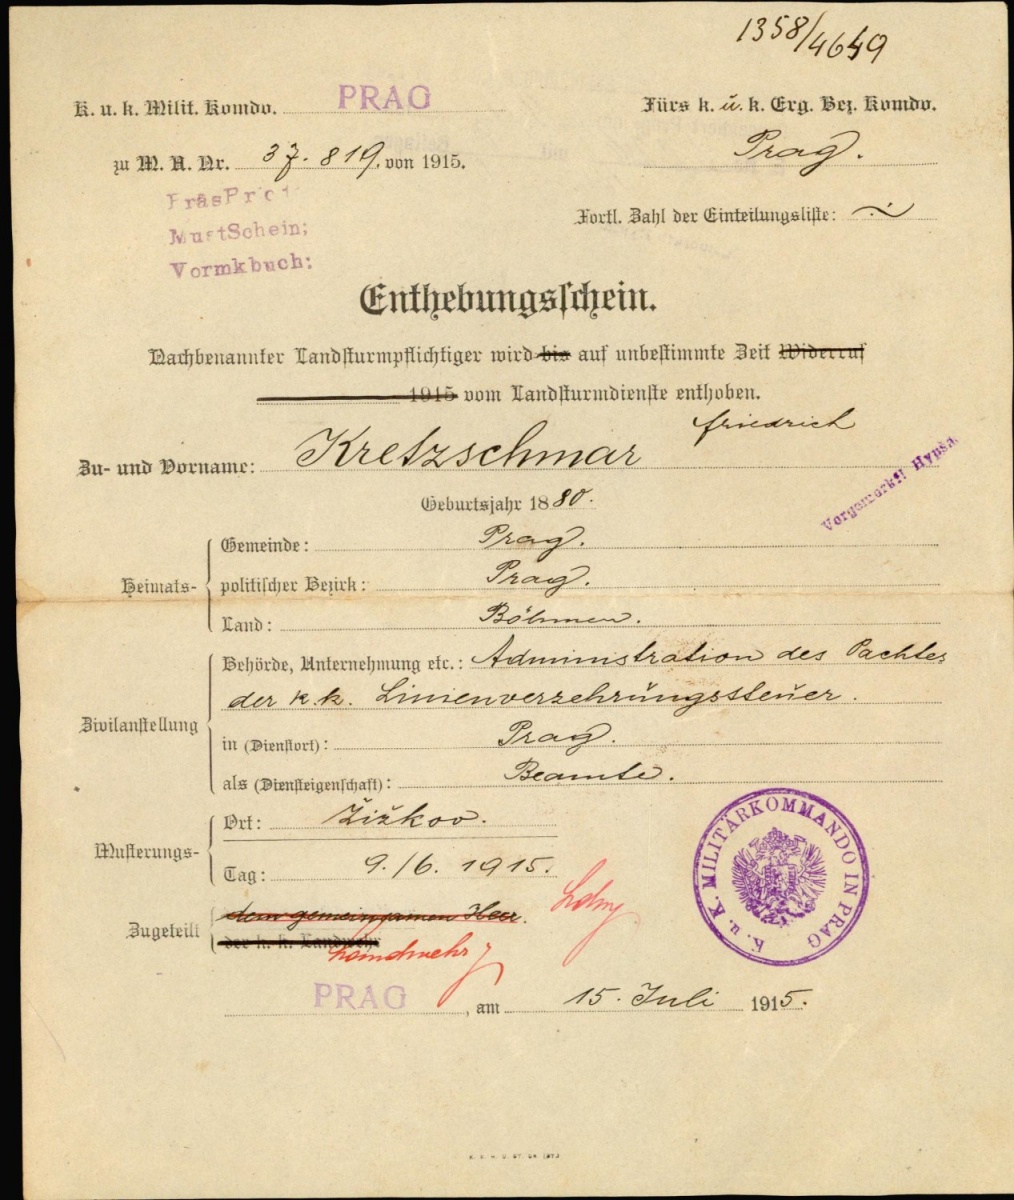 1358/4649
K. u. k. Milit. Komdo. PRAG
Fürs k. u. k. Erg. Bez. Komdo.
zu M. A. Nr. 37.819, von 1915.
Prag.
Fortl. Zahl der Einteilungsliste: ./.
PräsProt
MustSchein;
Vormkbuch:
Enthebungsschein.
Nachbenannter Landsturmpflichtiger wird bis auf unbestimmte Zeit Widerruf
1915 vom Landsturmdienste enthoben.
Zu- und Vorname: Kretzschmar Friedrich
Vorgemerkt! Hypša
Geburtsjahr 1880.
Heimats-
Gemeinde: Prag.
politischer Bezirk: Prag.
Land: Böhmen.
Zivilanstellung
Behörde, Unternehmung etc.: Administration des Pachtes
der k.k. Linienverzehrungssteuer.
in (Dienstort): Prag.
als (Diensteigenschaft): Beamte.
Musterungs-
Ort: Žižkov.
Tag: 9./6. 1915.
Zugeteilt
dem gemeinsamen Heer.
der k. k. Landwehr
Landwehr
K. u. K. MILITÄRKOMMANDO IN PRAG
PRAG, am 15. Juli 1915.